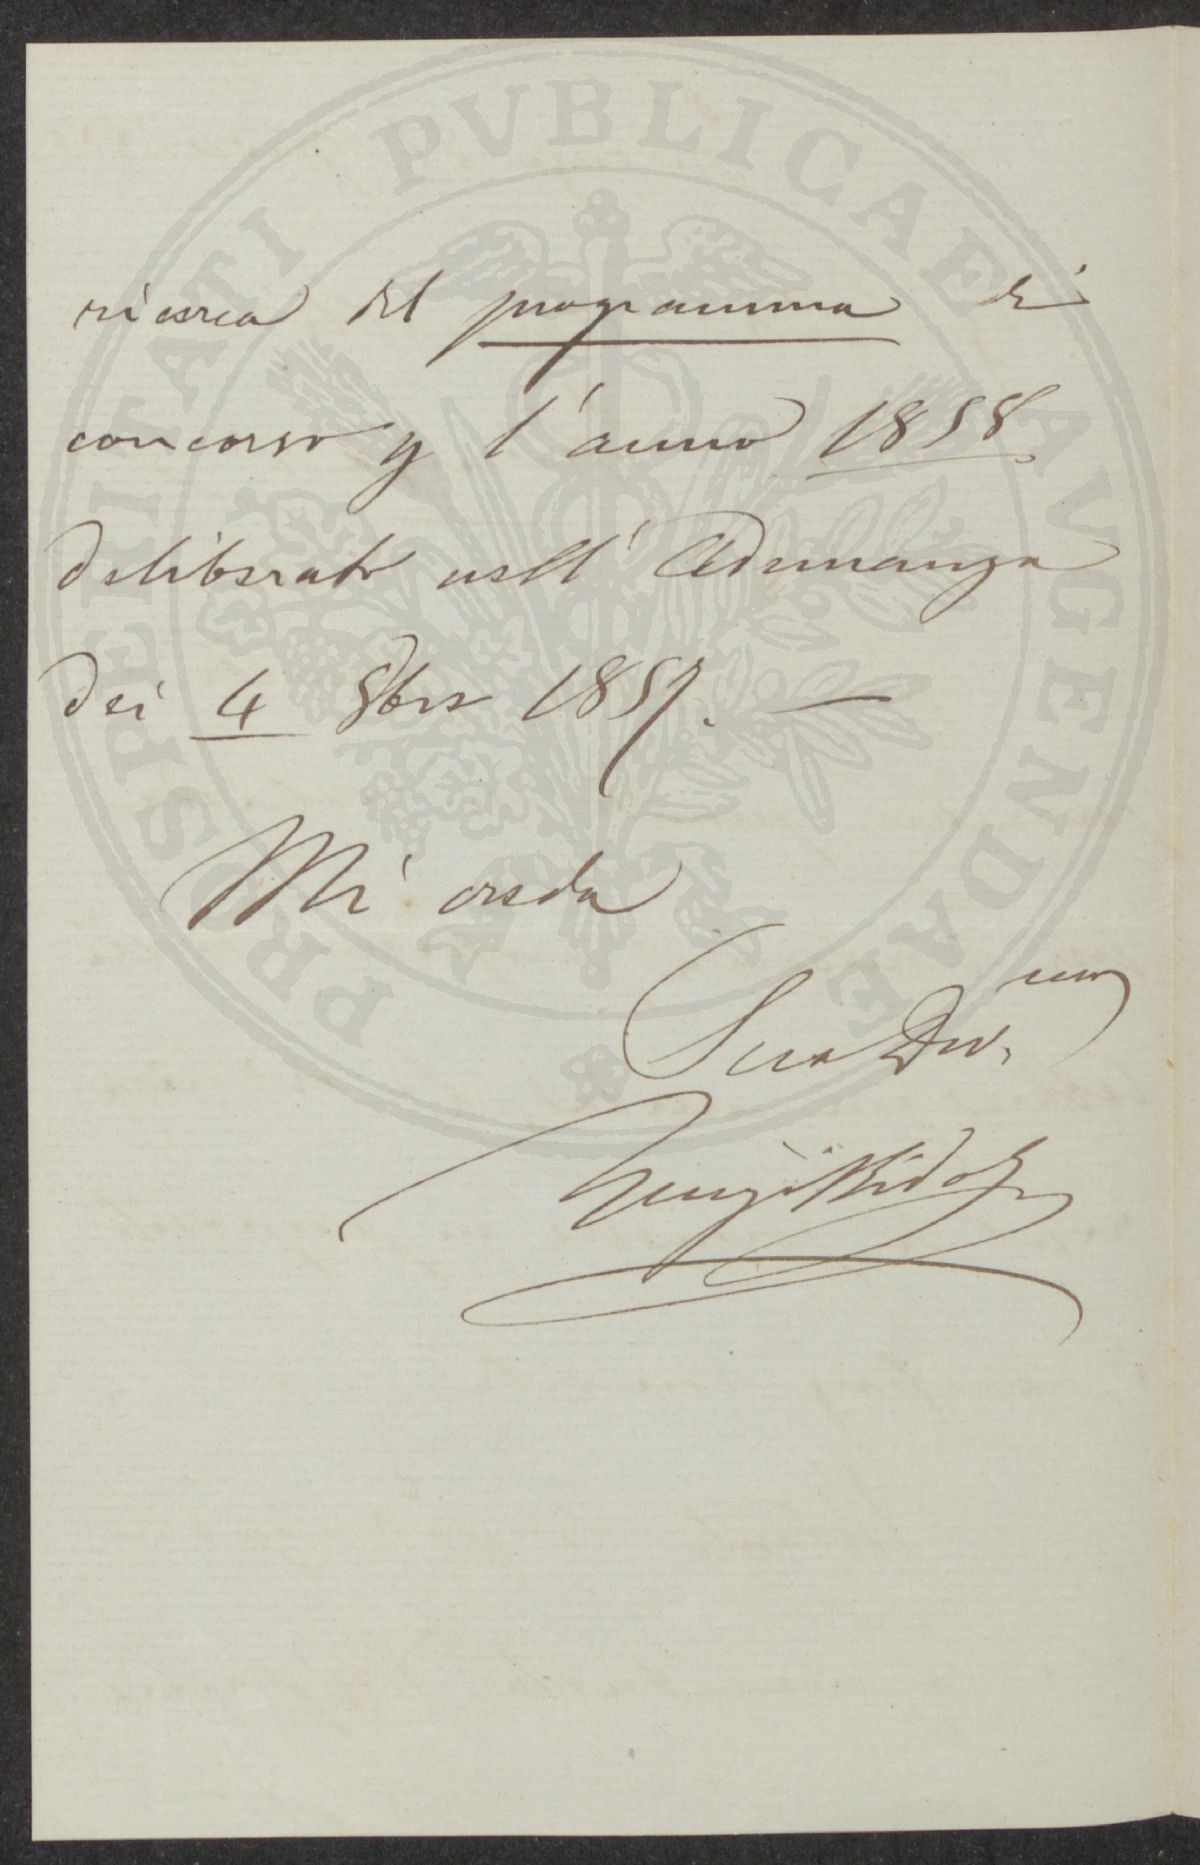 PROSPERITATI PVBLICAE AVGENDAE
ricerca del programma di
concorso p l'anno 1858
deliberato nell'Adunanza
dei 4 8bre 1857. —
Mi creda
Suo Dev.mo
Luigi Ridolfi